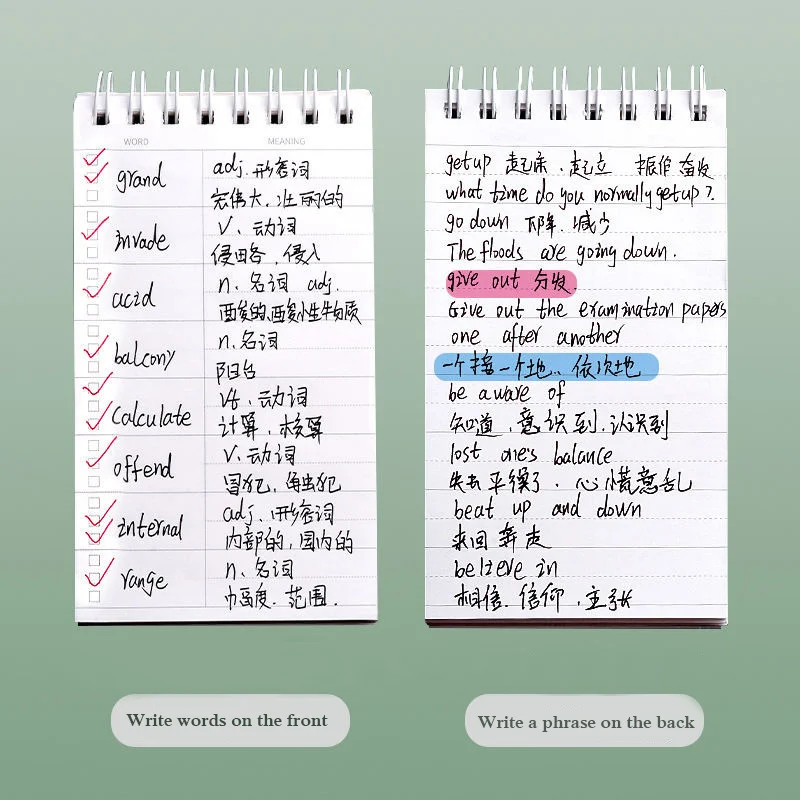 WORD MEANING
grand adj. 形容词
宏伟大、壮丽的
invade v. 动词
侵略、侵入
acid n. 名词 adj.
酉夋的、酸小性牛物质
balcony n. 名词
阳台
calculate vt. 动词
计算、核算
offend v. 动词
冒犯、触犯
internal adj. 形容词
内部的、国内的
range n. 名词
幅度、范围.
get up 起床、起立 振作奋发
what time do you normally get up?
go down 下降、减少
The floods are going down.
give out 分发.
Give out the examination papers
one after another
一个接一个地、依次地
be aware of
知道、意识到、认识到
lost one's balance
失去平衡了、心慌意乱
beat up and down
来回奔走
believe in
相信、信仰、主张
Write words on the front
Write a phrase on the back